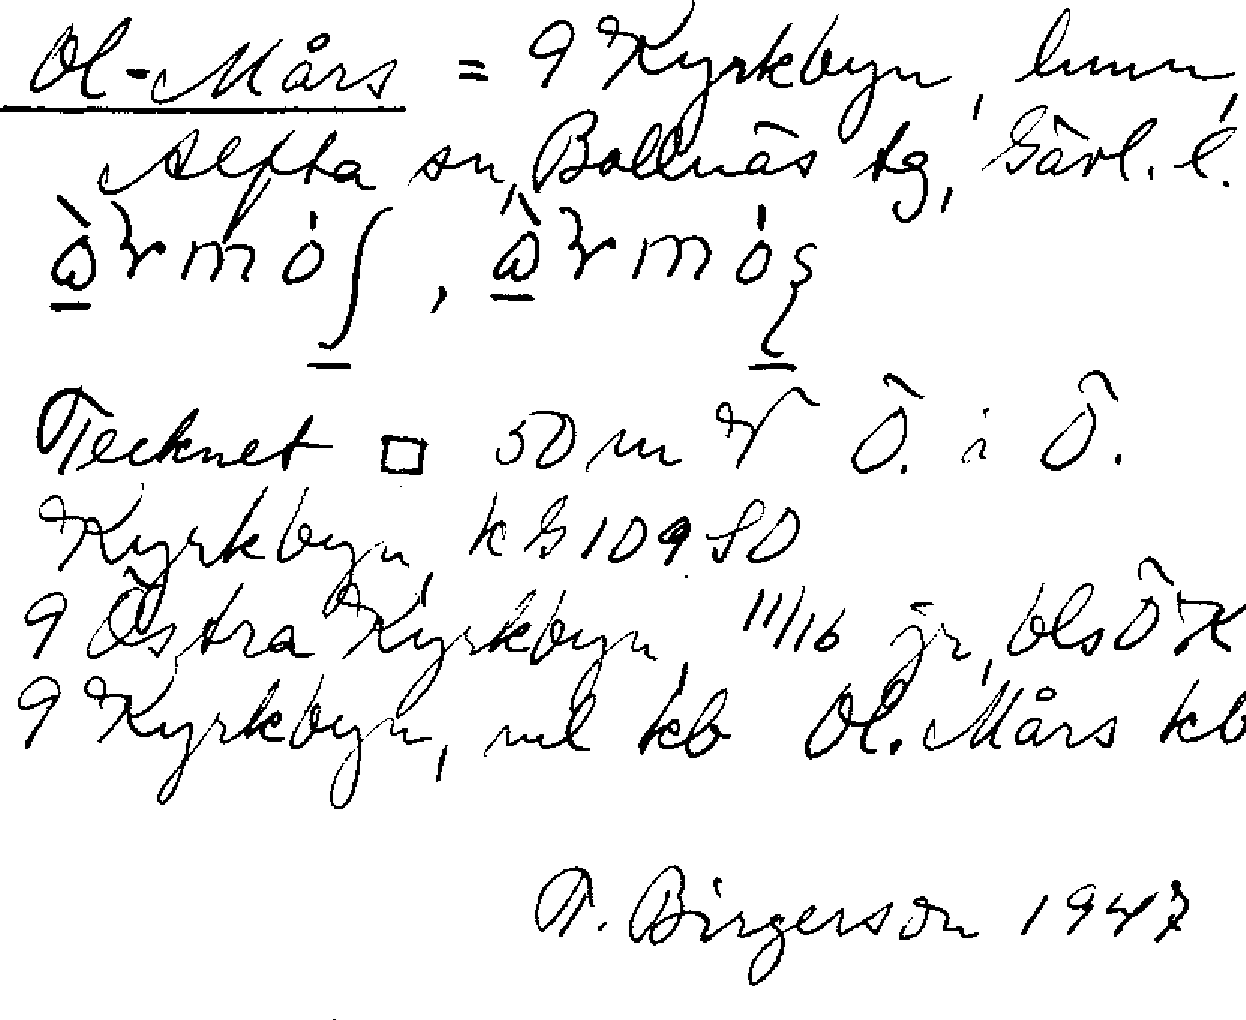 Ol-Mårs = 9 Kyrkbyn, hmn,
Alfta sn, Bollnäs tg, Gävl. l.
Tecknet □ 50 m V Ö. i Ö.
Kyrkbyn, k G 109 SO
9 Östra Kyrkbyn, 11/16 jr, bls ÖK
9 Kyrkbyn, ml kb Ol. Mårs kb
T. Birgerson 1947